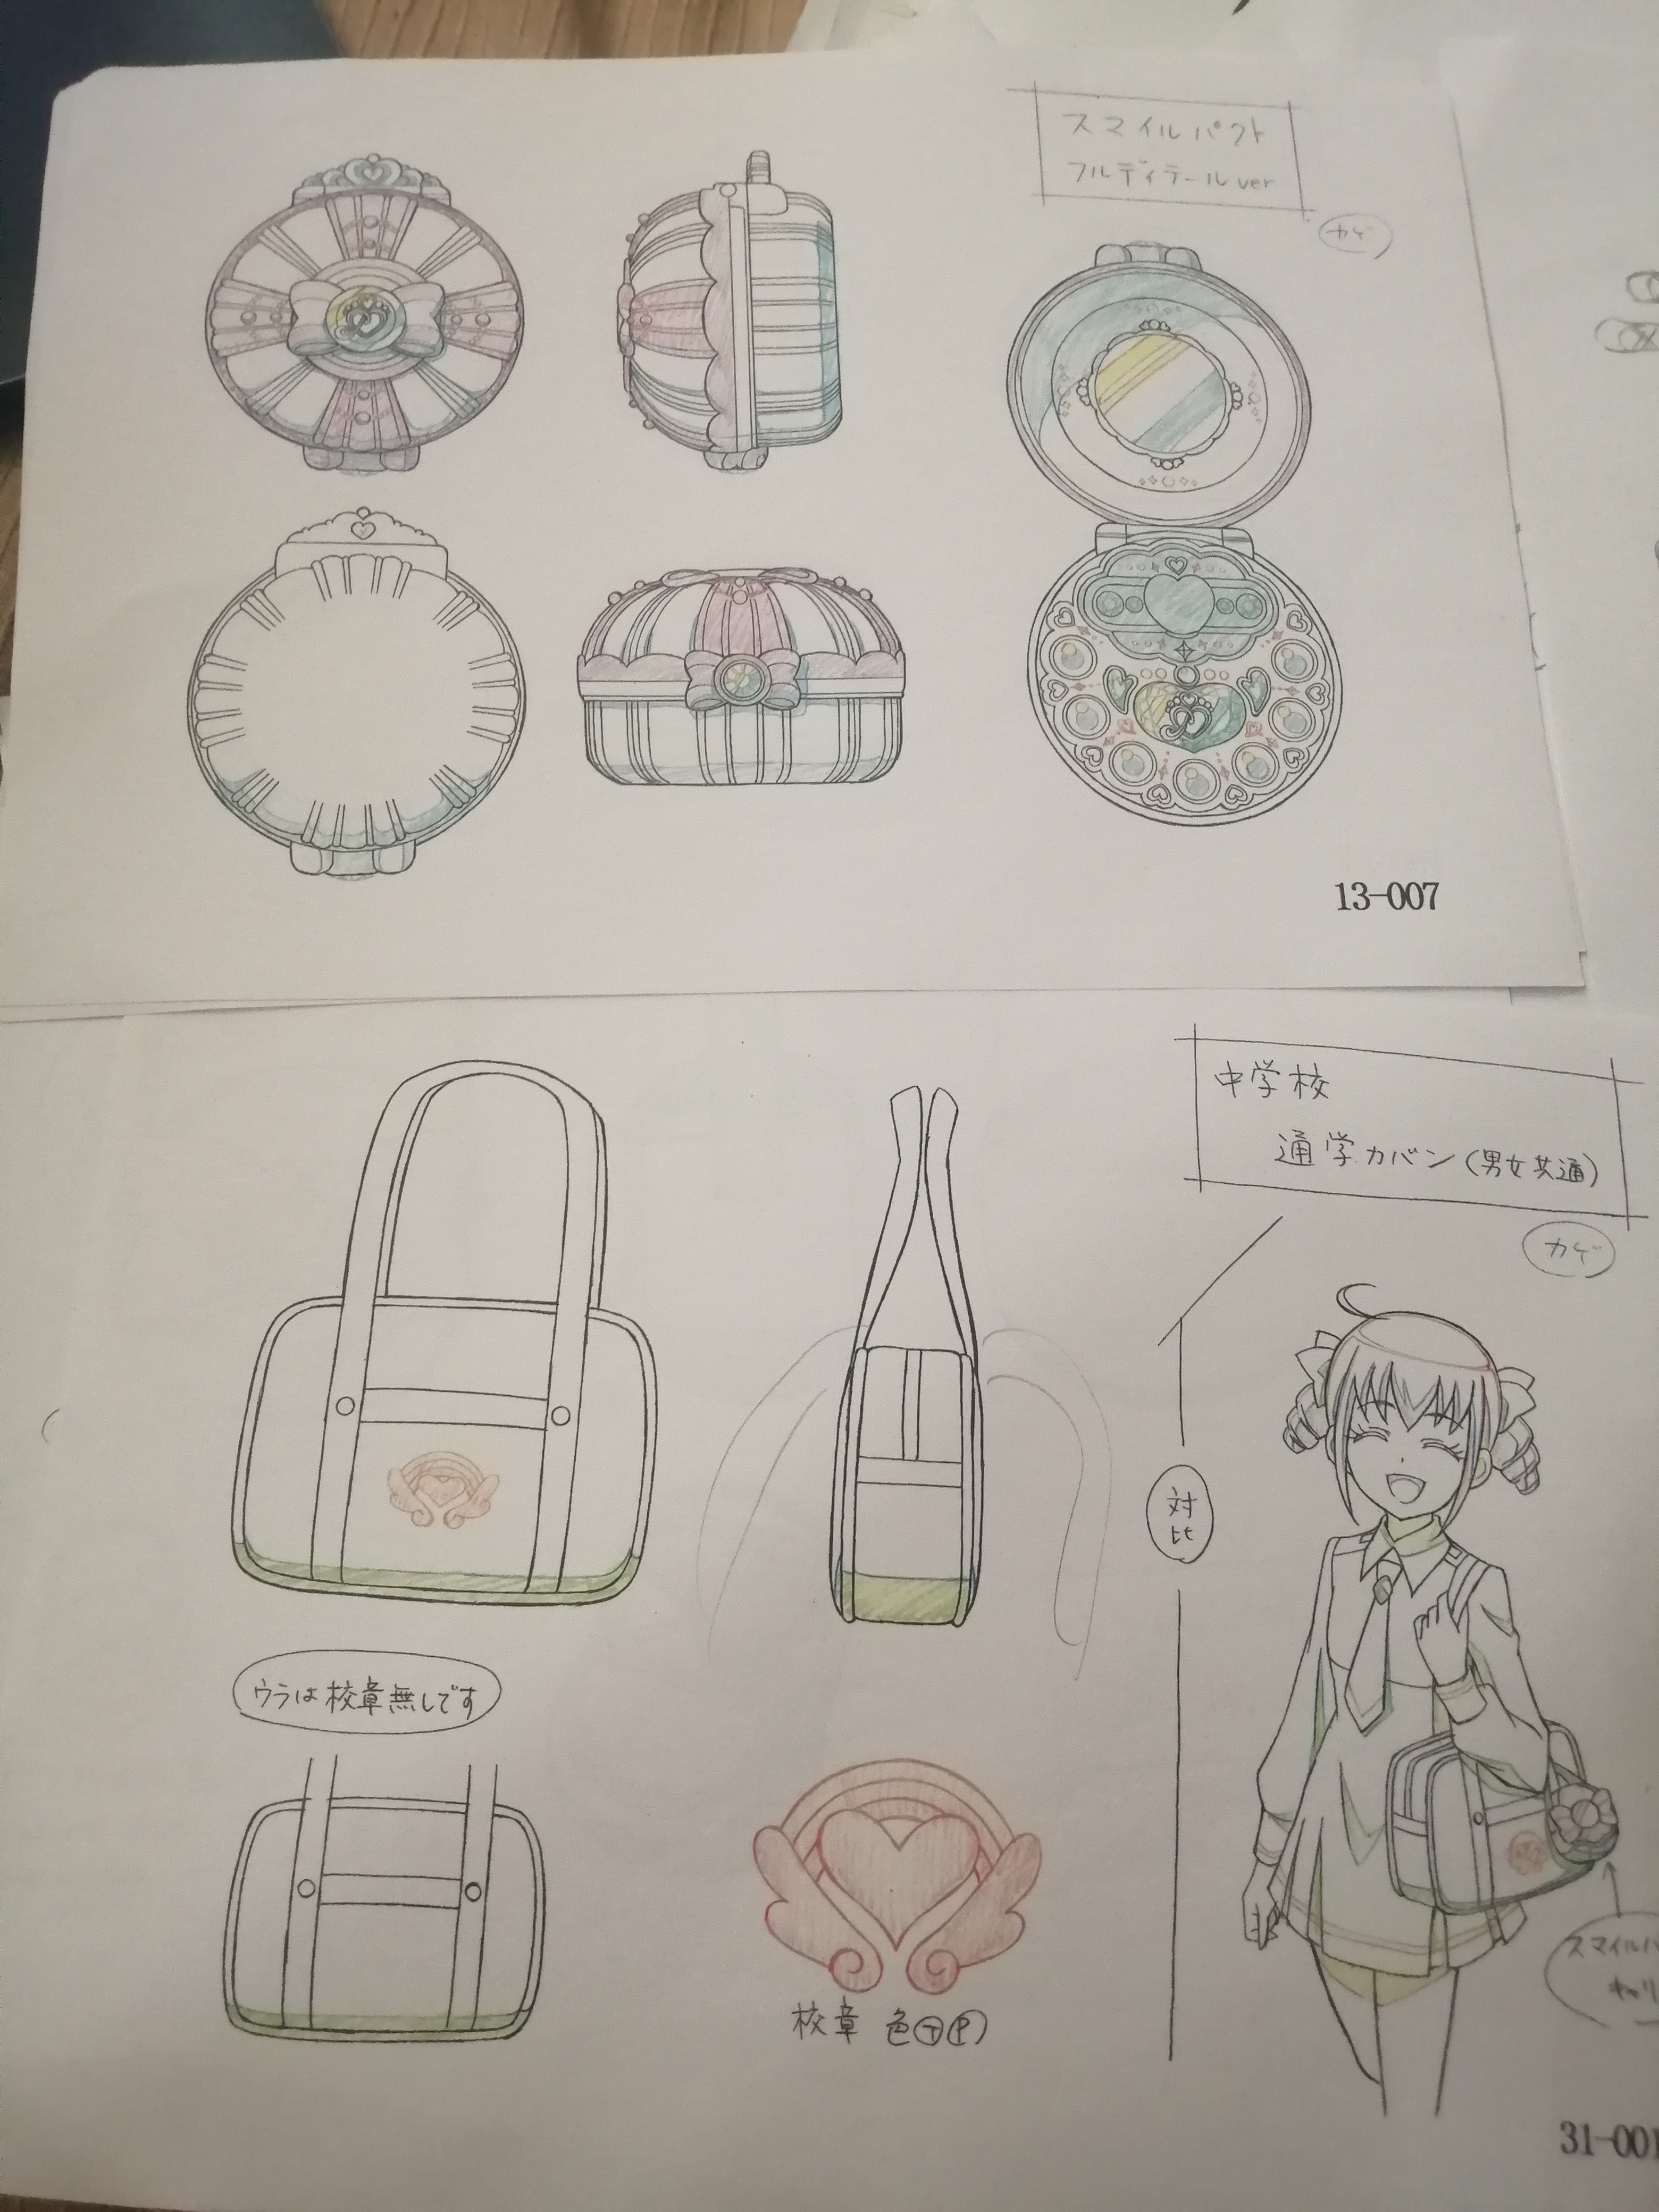 スマイルパクト
フルディテールver
カゲ
13-007
中学校
通学カバン(男女共通)
カゲ
対比
ウラは校章無しです
校章 色
31-001